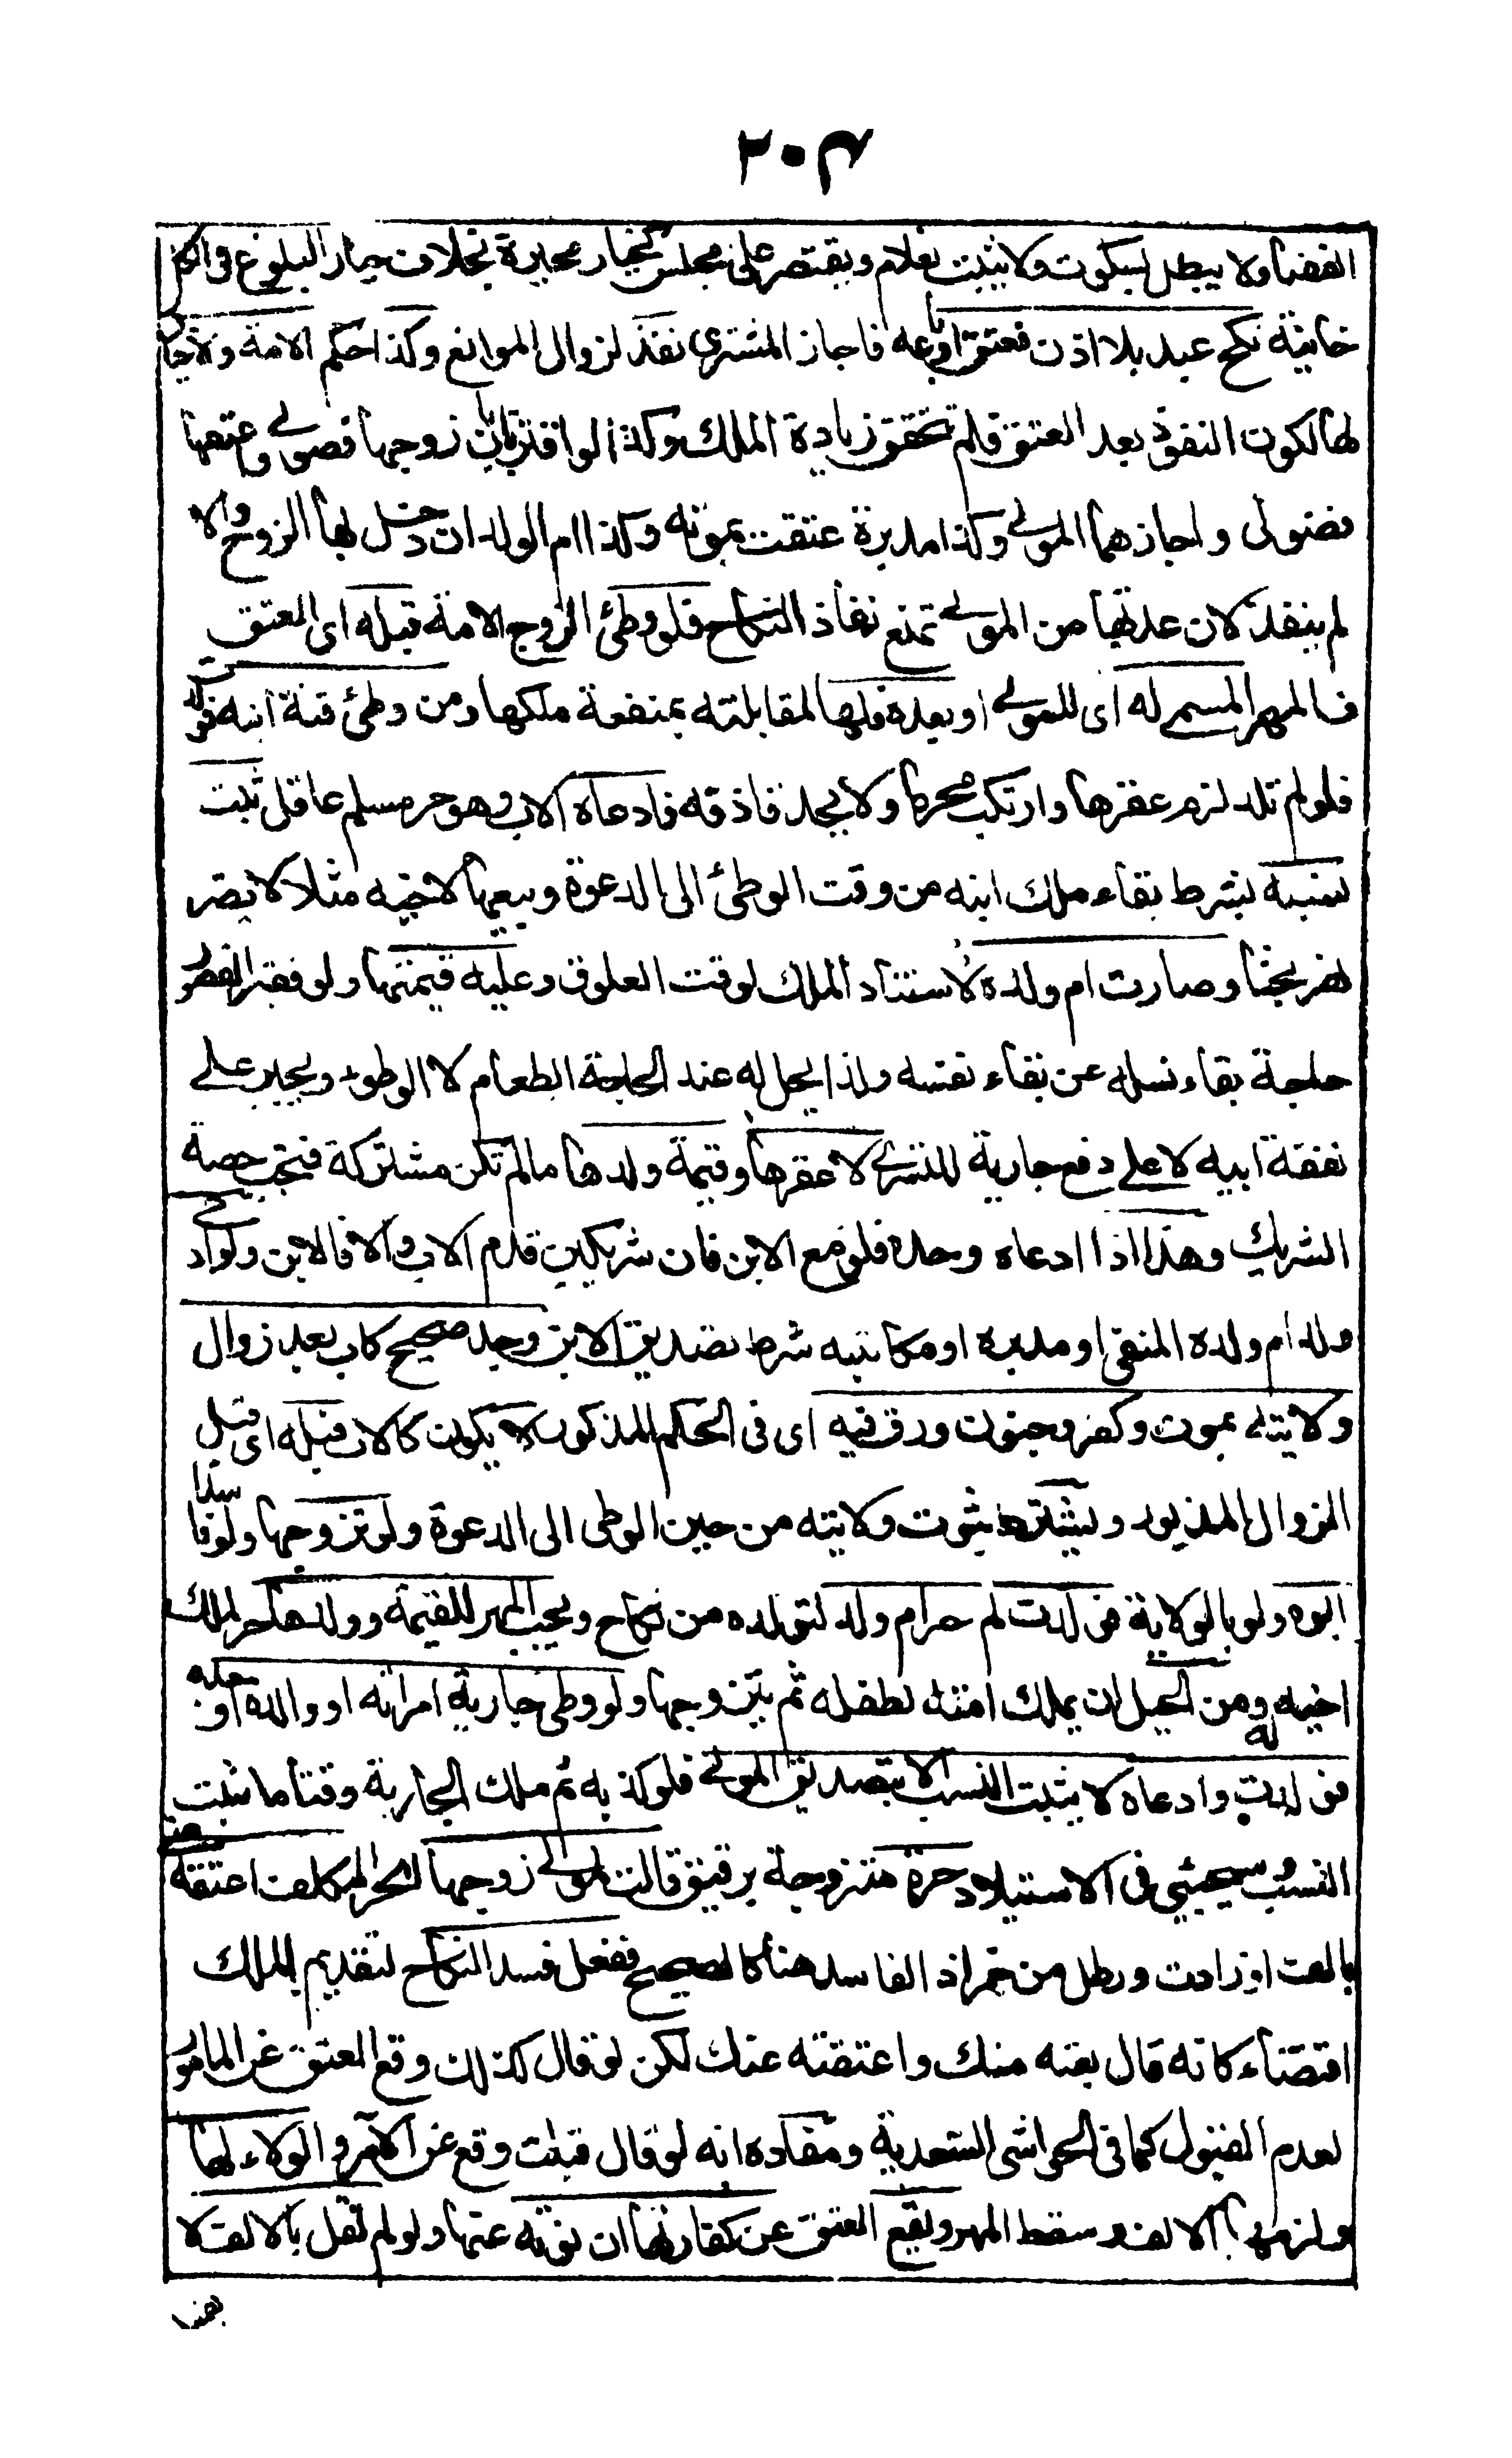 ٢٠٣
القضا ولا يبطل بسكوت ولا يثبت لغلام ويقتصر على مجلس كخيار مخيرة بخلاف خيار البلوغ في الكل
خانية نكح عبد بلا اذن فعتق او باعه فاجاز المشترى نفذ لزوال الموانع وكذا حكم الامة ولا خيار
لها لكون النفوذ بعد العتق فلم تتحقق زيادة الملك وكذا لو اقترنا بان زوجها فضولي واعتقها
فضولى واجازهما المولى وكذا مدبرة عتقت بموته وكذا ام الولد ان دخل بها الزوج والا
لم ينفذ لان عدتها من المولى تمنع نفاذ النكاح فلو وطئ الزوج الامة قبله اى العتق
فالمهر المسمى له اى للمولى او بعده فلها لمقابلته بمنفعة ملكتها ومن وطئ قنة ابنه فولد
فلو لم تلد لزم عقرها وارتكب محرما ولا يحد قاذفه فادعاه الاب وهو حر مسلم عاقل ثبت
نسبه بشرط بقاء ملك ابنه من وقت الوطئ الى الدعوة وبيعها لاخيه مثلا لا يضر
نهر بحثا وصارت ام ولده لاستناد الملك لوقت العلوق وعليه قيمتها ولو فقيرا لقصور
حاجة بقاء نسله عن بقاء نفسه ولذا يحل له عند الحاجة الطعام لا الوطوء ويجبر على
نفقة ابيه لا على دفع جارية للتسرى لا عقرها وقيمة ولدها ما لم تكن مشتركة فتجب حصة
الشريك وهذا اذا ادعاه وحده فلو مع الابن فان شريكين قدم الاب والا فالابن ولو اد
ولد ام ولده المنفى او مدبرة او مكاتبته شرط تصديق الابن وجد صحيح كاب بعد زوال
ولايته بموت وكفر وجنون ورق فيه اى فى الحكم المذكور لا يكون كالاب قبله اى قبل
الزوال المذبور ويشترط ثبوت ولايته من حين الوطى الى الدعوة ولو تزوجها ولو فا سدا
ابوه ولو بالولاية فولدت لم حرام ولد لتولده من نكاح ويجب المهر لا القيمة وولدها حر لملك
اخيه له ومن الحيل ان يملك امته لطفله ثم يتزوجها ولو وطى جارية امراته او والده او جده
فولدت وادعاه لا يثبت النسب الا بتصديق المولى فلو كذبه ثم ملك الجارية وقتا ما ثبت
النسب وسيجئ فى الاستيلاد حرة متزوجة برقيق قالت لمولى زوجها الحر المكلف اعتقه عنى
بالف او زادت ورطل من خمر اذ الفاسد هنا كالصحيح ففعل فسد النكاح لتقديم الملك
اقتضاء كانه قال بعته منك واعتقته عنك لكن لو قال كذلك وقع العتق عن المامور
لعدم القبول كما فى الحواشى السعدية ومفاده انه لو قال قبلت وقع عن الآمر والولاء لها
ولزمها الالف وسقط المهر ويقع العتق عن كفارتها ان نوته عنها ولو لم تقل بالالف لا